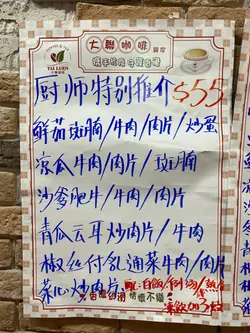 COFFEE & TEA
TAI LUEN
大聯咖啡
厨师特别推介$55
鲜茄斑腩/牛肉/肉片/炒蛋
凉瓜牛肉/肉片/斑腩
沙爹肥牛/牛肉/肉片
青瓜云耳炒肉片/牛肉
椒丝付乳通菜牛肉/肉片
菜心炒肉片
配:白飯/例汤/熱